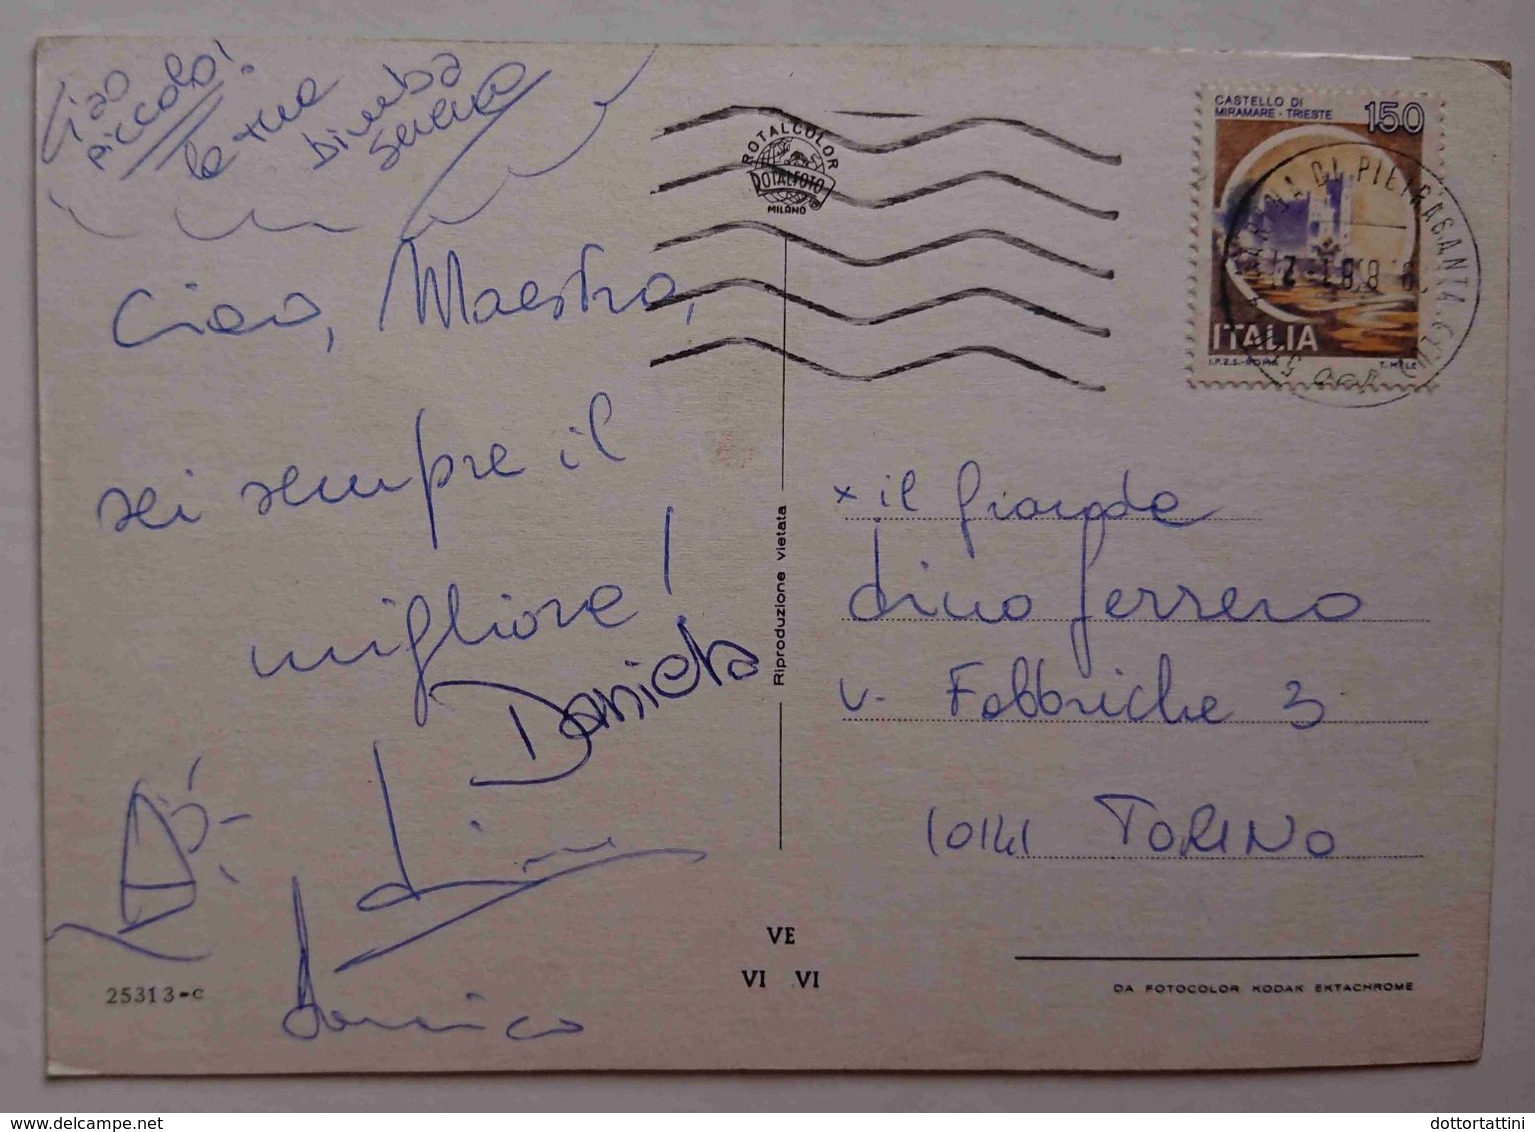 Ciao
piccolo!
la tua
bimba
serena
Ciao, Maestro,
sei sempre il
migliore!
Daniela
ROTALCOLOR
ROTALFOTO
MILANO
Riproduzione vietata
CASTELLO DI
MIRAMARE - TRIESTE
150
ITALIA
I.P.Z.S. - ROMA
T. MELE
MARINA DI PIETRASANTA
x il Grande
dino ferrero
v. Fabbriche 3
10141 TORINO
VE
VI VI
25313-C
DA FOTOCOLOR KODAK EKTACHROME
delcampe.net
dottortattini